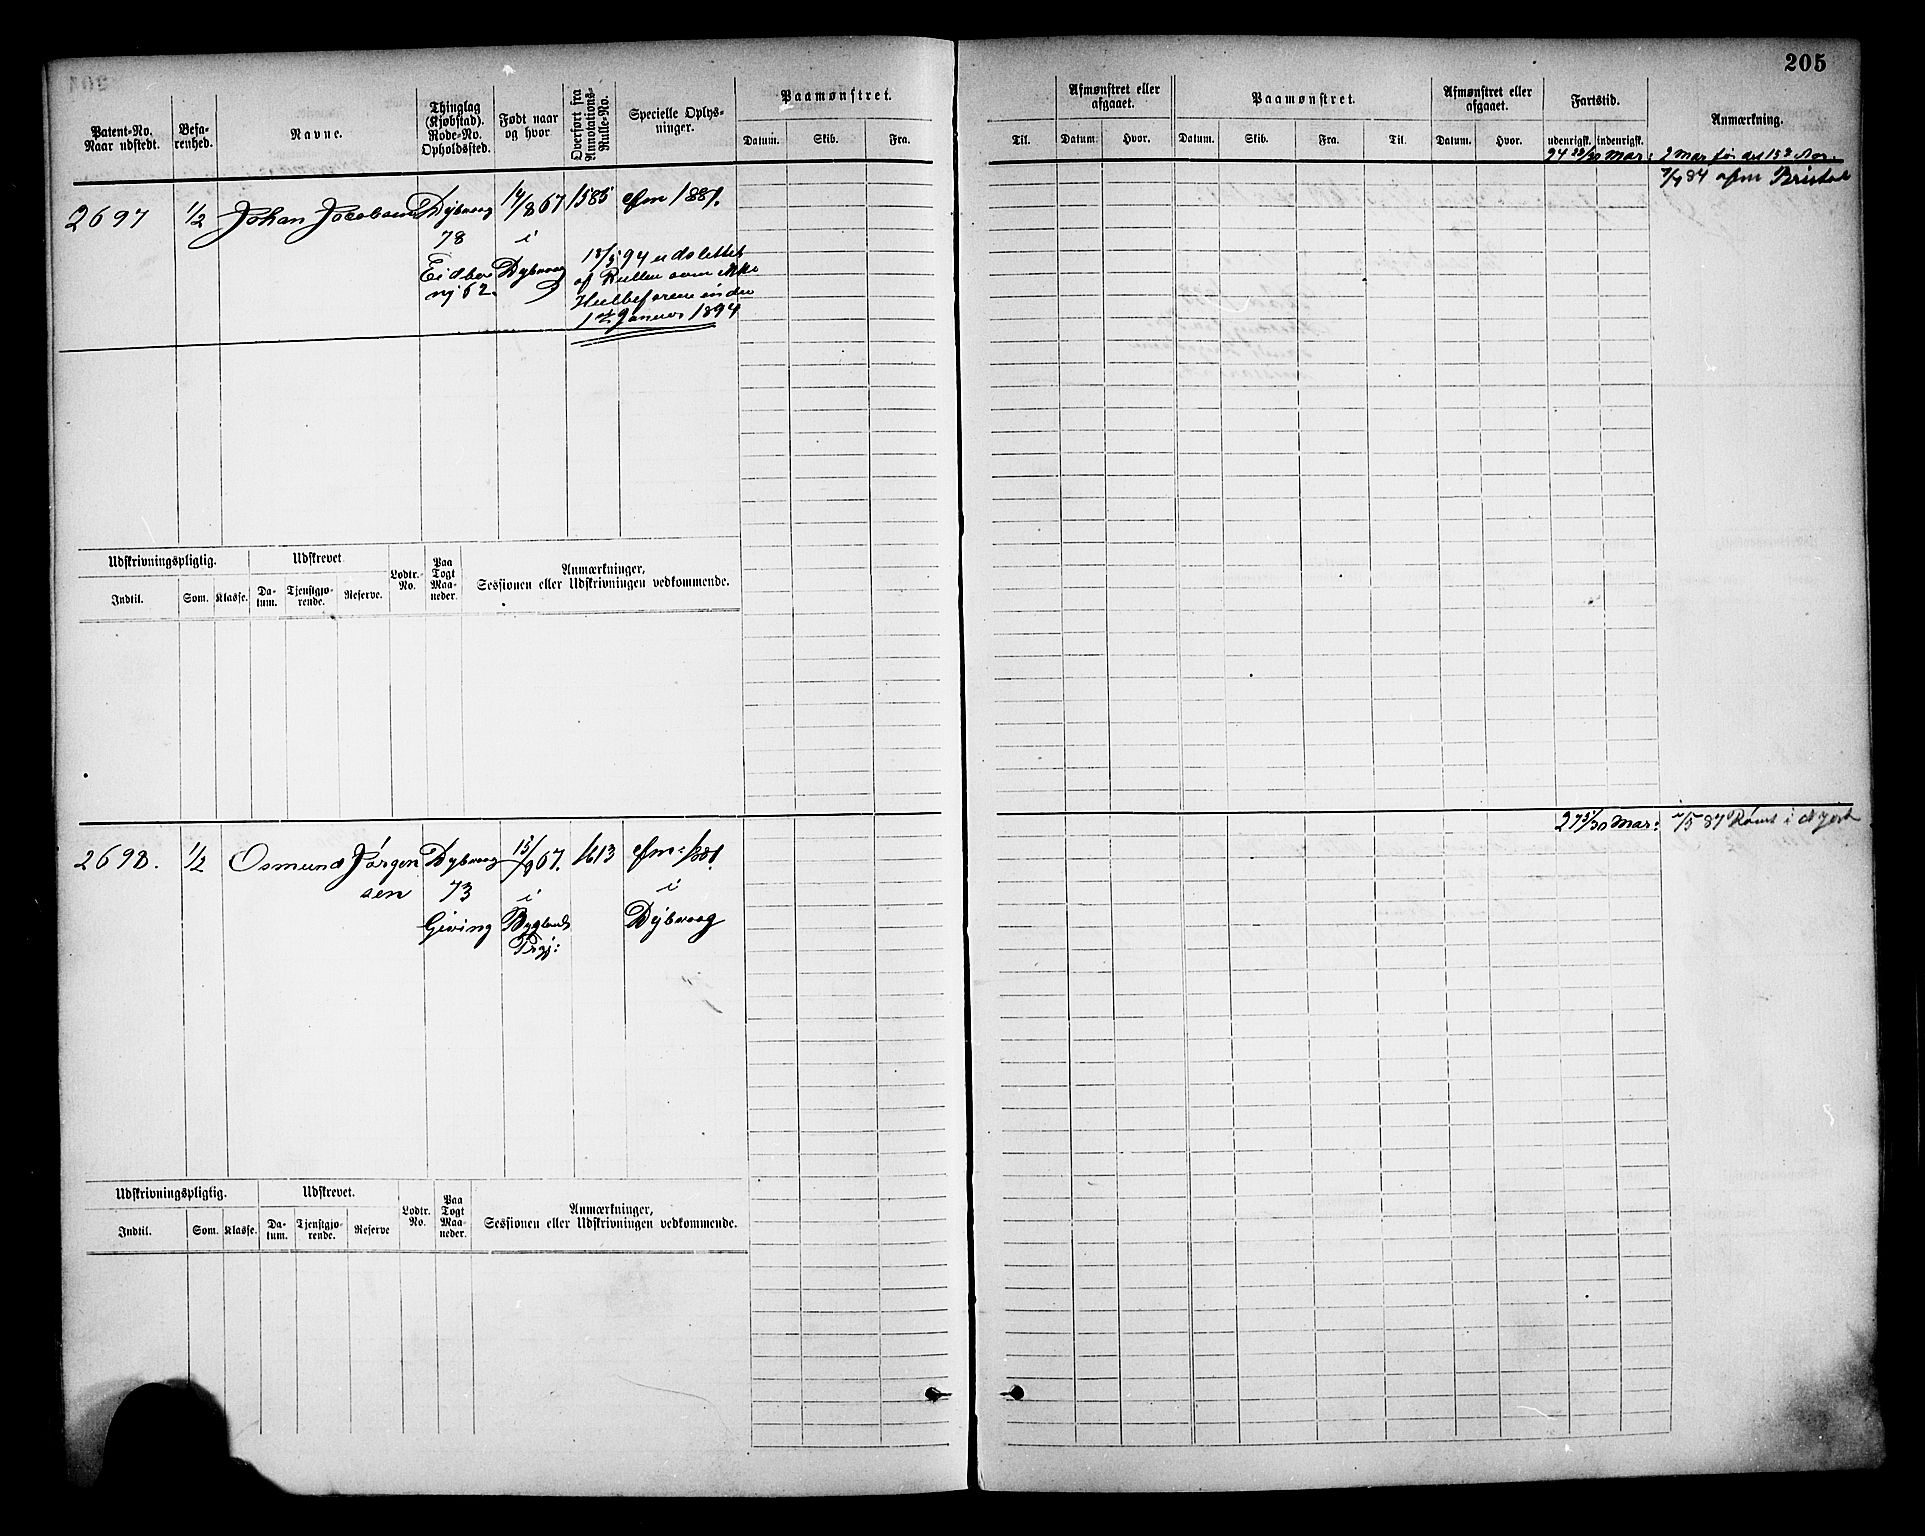 205
Patent-No. Naar udstedt.
Befarenhed.
Navne.
Thinglag (Kjøbstad). Rode-No. Opholdssted.
Født naar og hvor
Overført fra Annotations-Rulle-No.
Specielle Oplysninger.
Paamønstret.
Datum. Skib. Fra.
Til.
Afmønstret eller afgaaet.
Datum Hvor.
Paamønstret.
Datum. Skib. Fra. Til.
Afmønstret eller afgaaet.
Datum. Hvor.
Fartstid.
udenrigsk. indenrigsk.
Anmærkning.
2697 1/2 Johan Jacobsen Dybvaag 14/8 67 1585 efm 1881.
78 i
Eidbo Dybvaag
nj 62.
18/5 94 udslettet
af Rullen som ikke
Helbefaren inden
1ste Januar 1894
24 Mar:
7/9 84 afm Bristol
Udskrivningspligtig. Udskrevet. Lodtr.-No. Paa Togt Maaneder. Anmærkninger, Sessionen eller Udskrivningen vedkommende.
Indtil. Som. Klasse. Datum. Tjenstgjørende. Reserve.
2698. 1/2 Osmund Jørgen Dybvaag 15/9 67. 1613
sen 73 i i
Giving Bygland Dybvaag
Prgj:
27 5/30 Mar: 7/5 87 Rømt i
Udskrivningspligtig. Udskrevet. Lodtr. No. Paa Togt Maaneder. Anmærkninger, Sessionen eller Udskrivningen vedkommende.
Indtil. Som. Klasse. Datum. Tjenstgjørende. Reserve